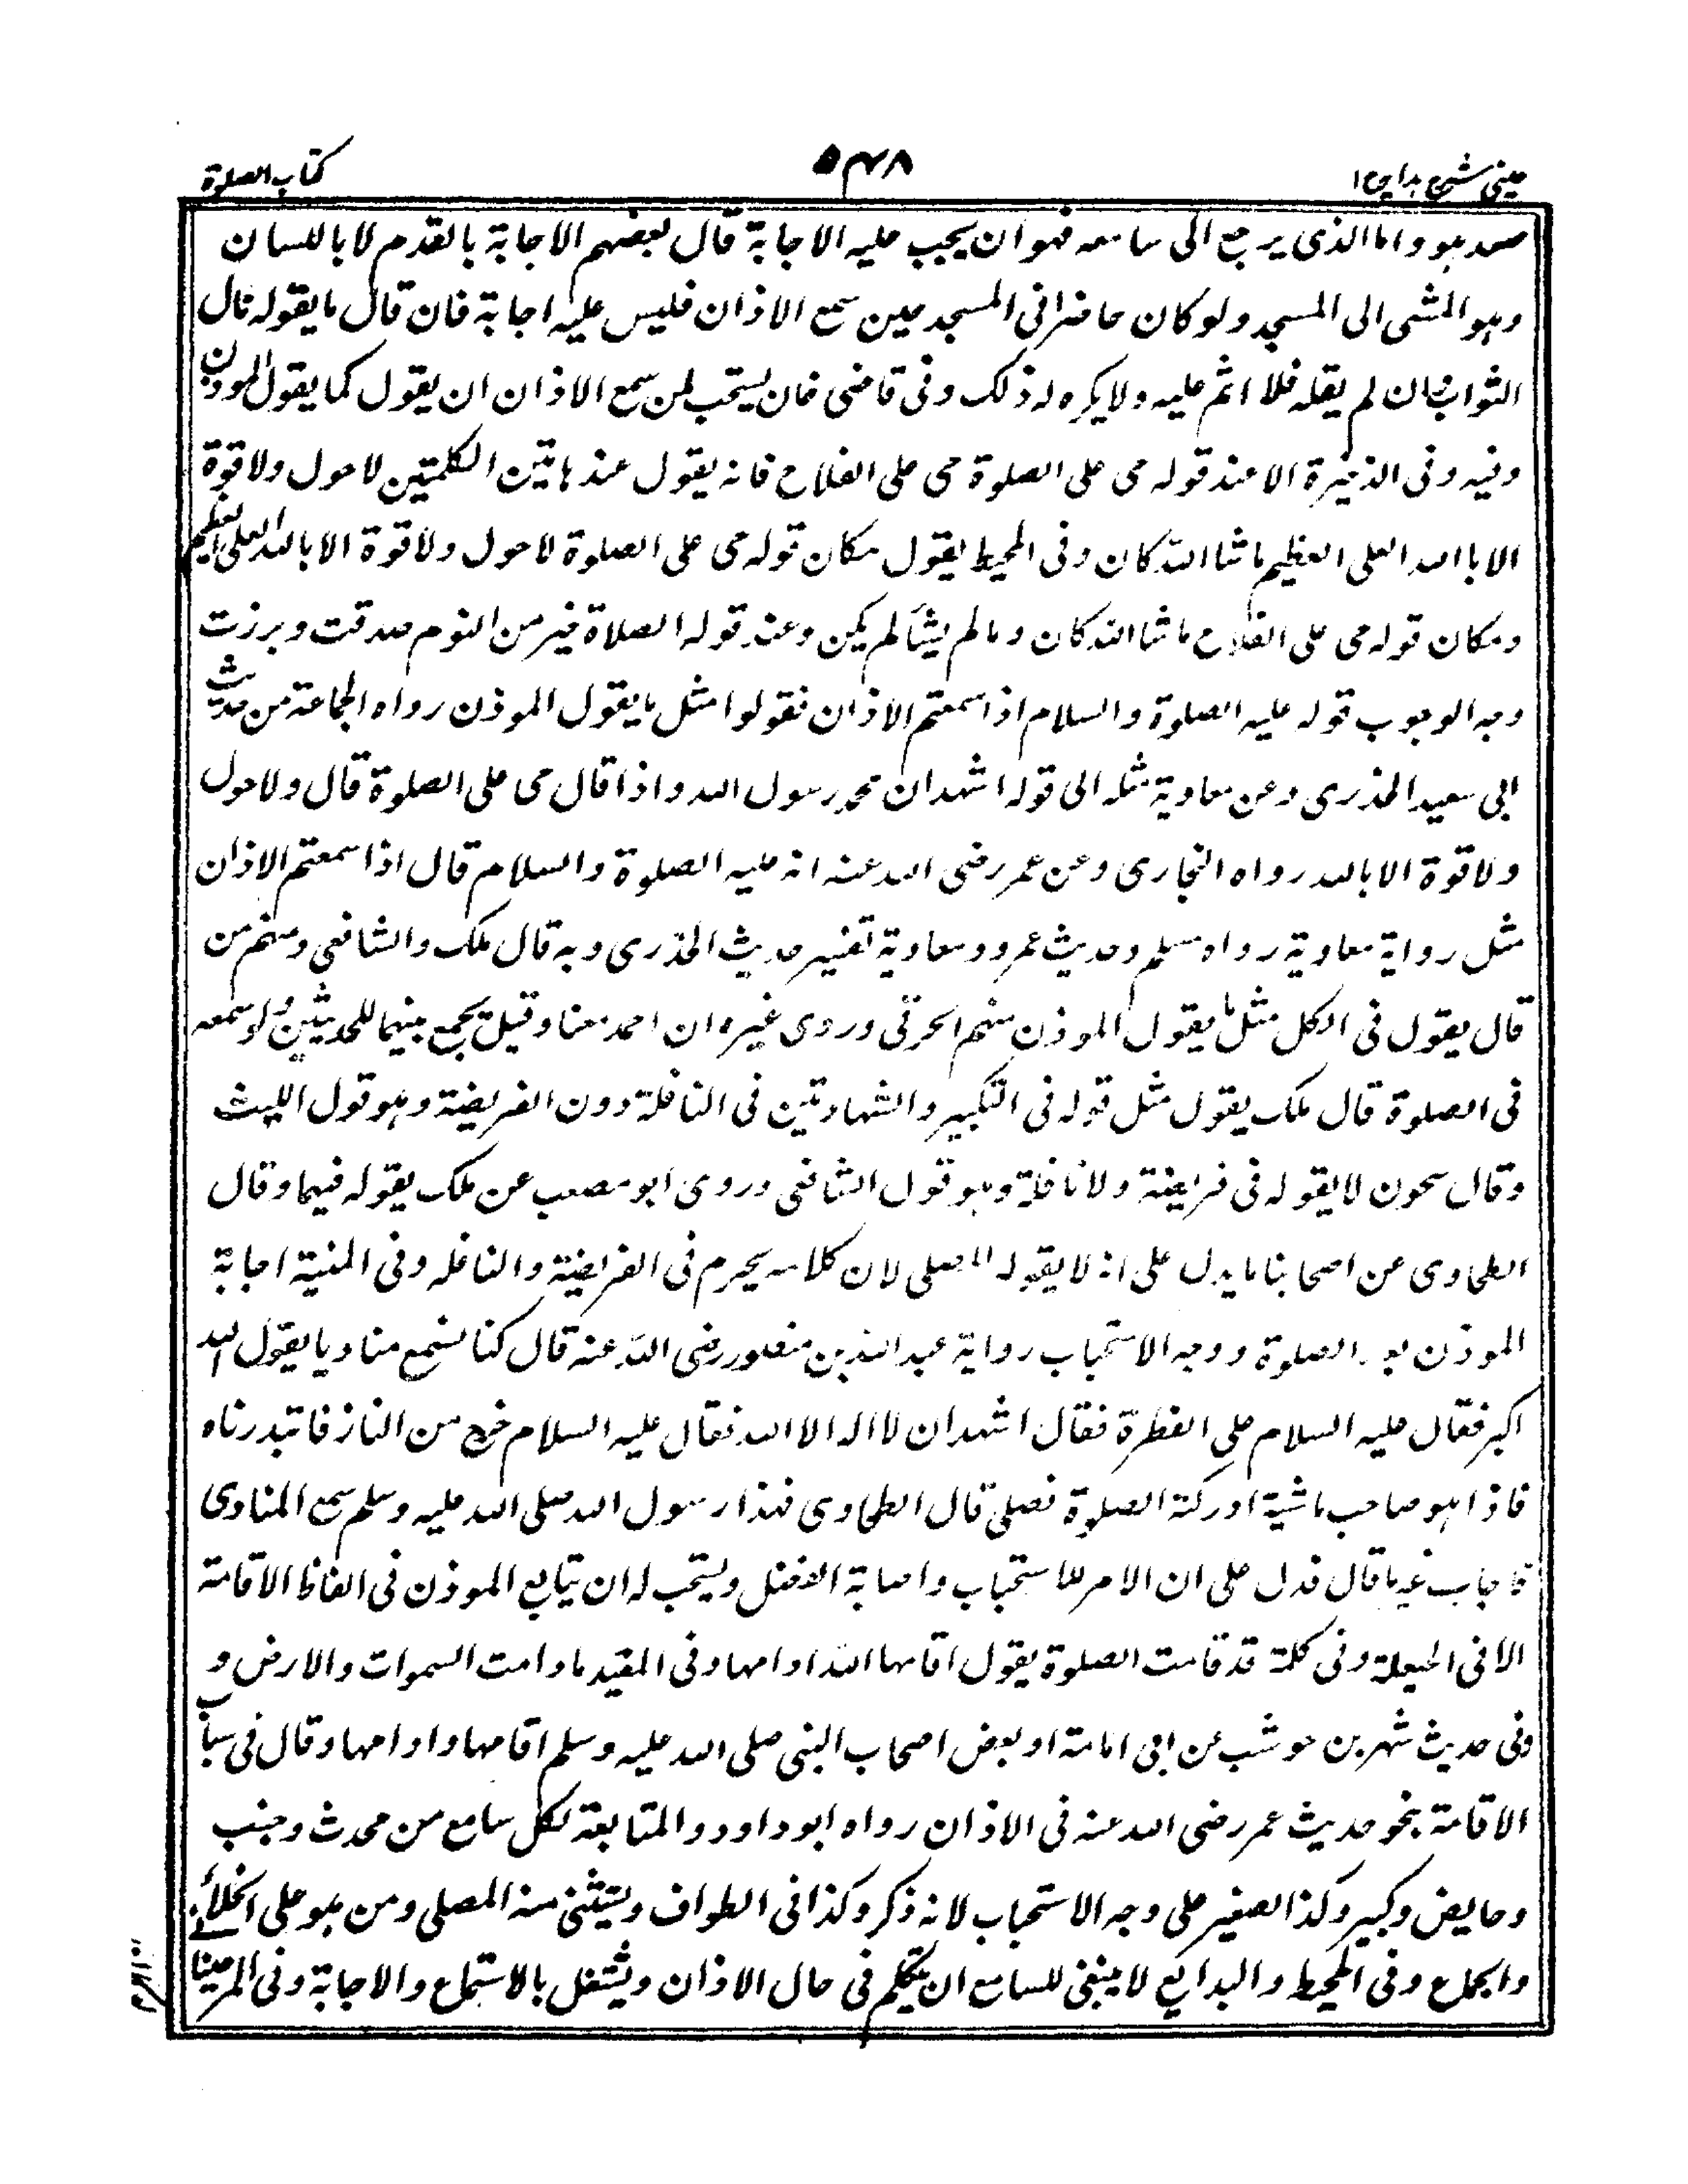 عینی شرح ہدایہ ج ١
٥٤٨
کتاب الصلوة
وہو واما الذی یرجع الی سامعہ فہو ان یجب علیہ الاجابة قال بعضہم الاجابة بالقدم لا باللسان
وہو المشی الی المسجد ولو کان حاضرا فی المسجد حین سمع الاذان فلیس علیہ اجابة فان قال ما یقولہ نال
الثواب وان لم یقلہ فلا اثم علیہ ولا یکرہ لہ ذلک وفی قاضی خان یستحب لمن سمع الاذان ان یقول کما یقول الموذن
وفیہ وفی الذخیرة الا عند قولہ حی علی الصلوة حی علی الفلاح فانہ یقول عند ہاتین الکلمتین لا حول ولا قوة
الا باللہ العلی العظیم ما شا اللہ کان وفی المحیط یقول مکان قولہ حی علی الصلوة لا حول ولا قوة الا باللہ العلی العظیم
ومکان قولہ حی علی الفلاح ما شا اللہ کان وما لم یشأ لم یکن وعند قولہ الصلاة خیر من النوم صدقت وبرزت
وجہ الوجوب قولہ علیہ الصلوة والسلام اذا سمعتم الاذان فقولوا مثل ما یقول الموذن رواہ الجماعة من حدیث
ابی سعید الخذری وعن معاویة مثلہ الی قولہ اشہد ان محمد رسول اللہ واذا قال حی علی الصلوة قال ولا حول
ولا قوة الا باللہ رواہ البخاری وعن عمر رضی اللہ عنہ انہ علیہ الصلوة والسلام قال اذا سمعتم الاذان
مثل روایة معاویة رواہ مسلم وحدیث عمرو ومعاویة تفسیر حدیث الخذری وبہ قال ملک والشافعی ومنہم من
قال یقول فی الکل مثل ما یقول الموذن منہم الخرقی وروی غیرہ ان احمد معنا وقیل یجمع بینہما للحدیثین ولو سمعہ
فی الصلوة قال ملک یقول مثل قولہ فی التکبیر والشہادتین فی النافلة دون الفریضة وہو قول اللیث
وقال سحون لا یقولہ فی فریضة ولا نافلة وہو قول الشافعی وروی ابو مصعب عن ملک یقولہ فیہما وقال
الطحاوی عن اصحابنا ما یدل علی انہ لا یقولہ المصلی لان کلامہ یحرم فی الفریضة والنافلہ وفی المنیة اجابة
الموذن بعد الصلوة ووجہ الاستحباب روایة عبد اللہ بن منصور رضی اللہ عنہ قال کنا نسمع منادیا یقول اللہ
اکبر فقال علیہ السلام علی الفطرة فقال اشہد ان لا الہ الا اللہ فقال علیہ السلام خرج من النار فابتدرناہ
فاذا ہو صاحب ماشیة ادرکتہ الصلوة فصلی قال الطحاوی فہذا رسول اللہ صلی اللہ علیہ وسلم سمع المنادی
فاجاب غیر ما قال فدل علی ان الامر للاستحباب واصابة الفضل ویستحب لہ ان یتابع الموذن فی الفاظ الاقامة
الا فی الحیعلة وفی کلمة قد قامت الصلوة یقول اقامہا اللہ ادامہا وفی المفید ما دامت السموات والارض و
وفی حدیث شہر بن حوشب عن ابی امامة او بعض اصحاب النبی صلی اللہ علیہ وسلم اقامہا وادامہا وقال فی سباب
الاقامة بنحو حدیث عمر رضی اللہ عنہ فی الاذان رواہ ابو داود والمتابعة لکل سامع من محدث وجنب
وحایض وکبیر وکذا الصغیر علی وجہ الاستحباب لانہ ذکر وکذا فی الطواف ویستثنی منہ المصلی ومن ہو علی الخلأ
والجماع وفی المحیط والبدایع لا ینبغی للسامع ان یتکلم فی حال الاذان ویشتغل بالاستماع والاجابة وفی المرغینا